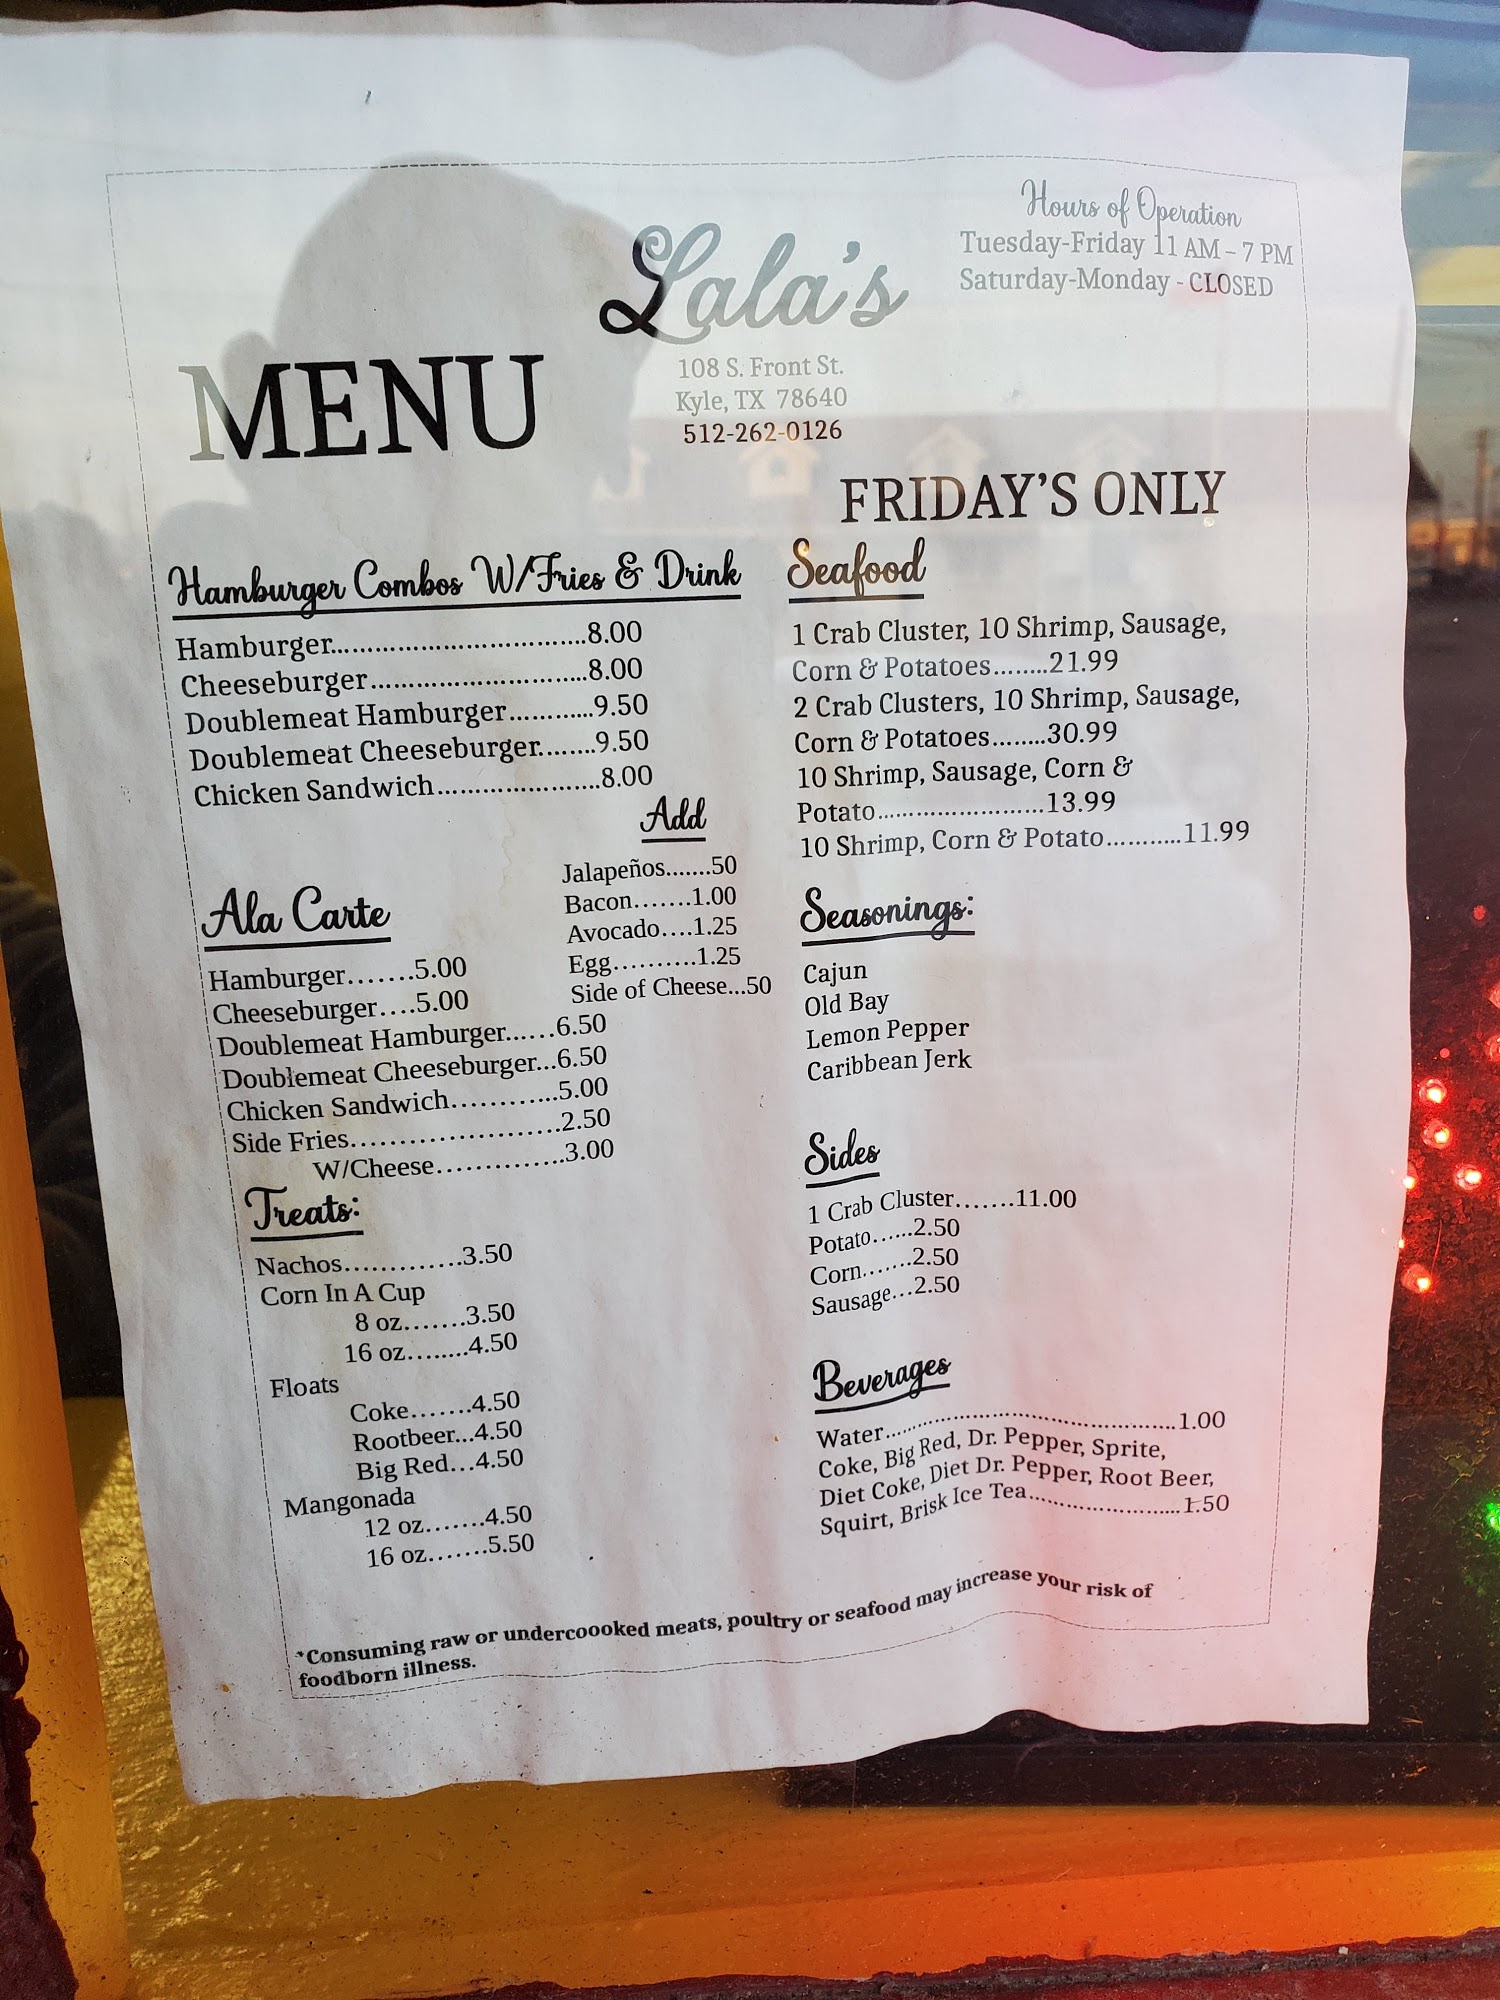 Hours of Operation
Tuesday-Friday 11 AM – 7 PM
Saturday-Monday - CLOSED
Lala's
108 S. Front St.
Kyle, TX 78640
512-262-0126
MENU
FRIDAY'S ONLY
Hamburger Combos W/Fries & Drink
Hamburger....................................8.00
Cheeseburger..............................8.00
Doublemeat Hamburger............9.50
Doublemeat Cheeseburger........9.50
Chicken Sandwich.......................8.00
Add
Jalapeños.......50
Bacon.......1.00
Avocado....1.25
Egg..........1.25
Side of Cheese...50
Ala Carte
Hamburger.......5.00
Cheeseburger....5.00
Doublemeat Hamburger......6.50
Doublemeat Cheeseburger...6.50
Chicken Sandwich............5.00
Side Fries.......................2.50
W/Cheese..............3.00
Treats:
Nachos.............3.50
Corn In A Cup
8 oz.......3.50
16 oz........4.50
Floats
Coke.......4.50
Rootbeer...4.50
Big Red...4.50
Mangonada
12 oz.......4.50
16 oz.......5.50
Seafood
1 Crab Cluster, 10 Shrimp, Sausage,
Corn & Potatoes........21.99
2 Crab Clusters, 10 Shrimp, Sausage,
Corn & Potatoes........30.99
10 Shrimp, Sausage, Corn &
Potato.........................13.99
10 Shrimp, Corn & Potato...........11.99
Seasonings:
Cajun
Old Bay
Lemon Pepper
Caribbean Jerk
Sides
1 Crab Cluster.......11.00
Potato......2.50
Corn.......2.50
Sausage...2.50
Beverages
Water..........................................1.00
Coke, Big Red, Dr. Pepper, Sprite,
Diet Coke, Diet Dr. Pepper, Root Beer,
Squirt, Brisk Ice Tea......................1.50
*Consuming raw or undercoooked meats, poultry or seafood may increase your risk of
foodborn illness.